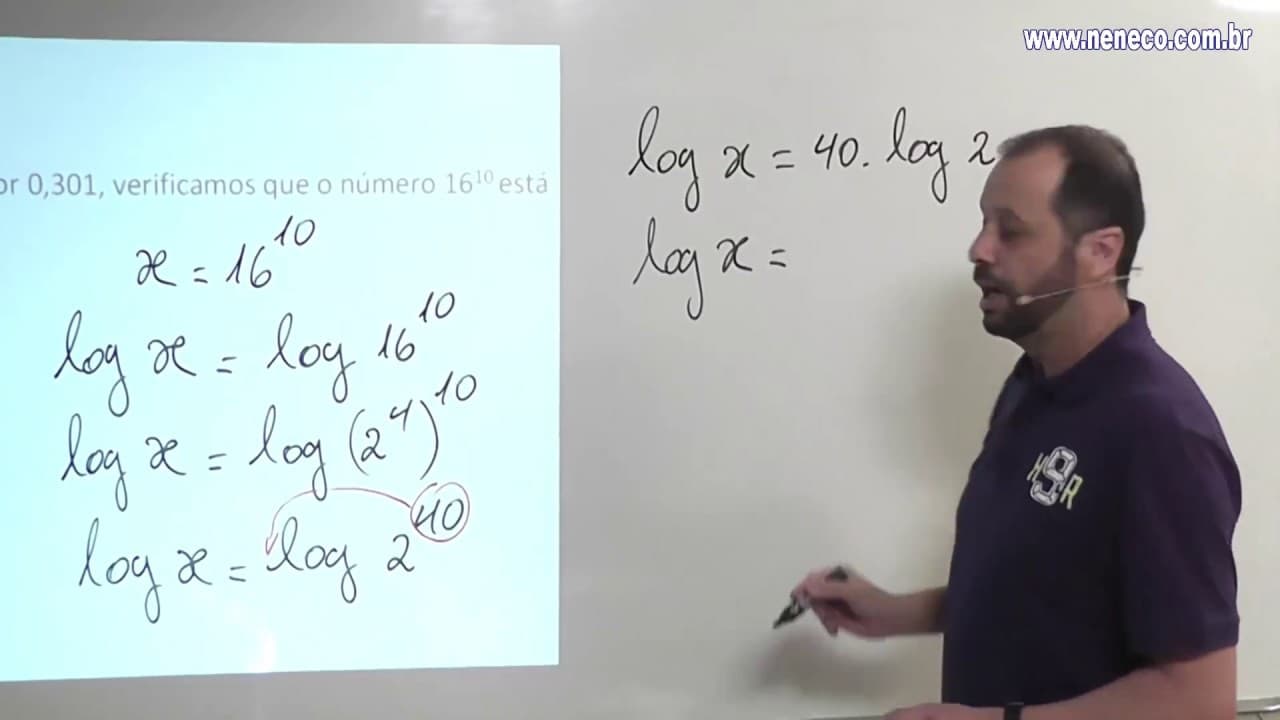 www.neneco.com.br
or 0,301, verificamos que o número 16¹⁰ está
x = 16¹⁰
log x = log 16¹⁰
log x = log (2⁴)¹⁰
log x = log 2⁴⁰
log x = 40. log 2
log x =
M9R